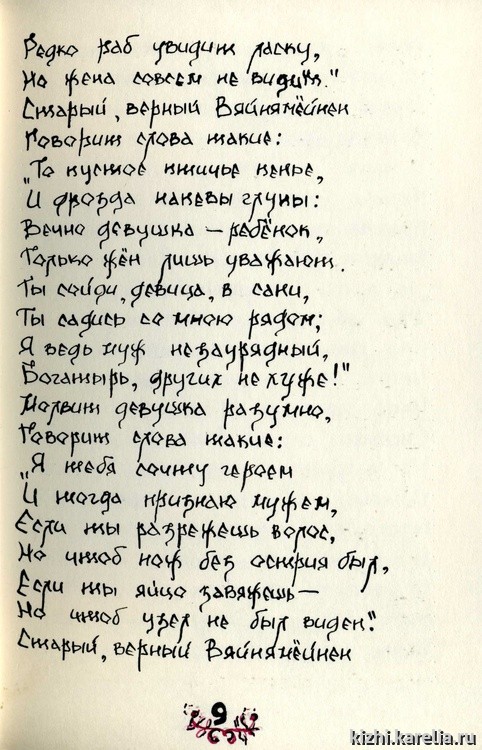 Редко раб увидит ласку,
Но жена совсем не видит."
Старый, верный Вяйнямёйнен
Говорит слова такие:
„То пустое птичье пенье,
И дрозда напевы глупы:
Вечно девушка – ребёнок,
Только жён лишь уважают.
Ты сойди, девица, в сани,
Ты садись со мною рядом;
Я ведь муж незаурядный,
Богатырь, других не хуже!"
Молвит девушка разумно,
Говорит слова такие:
„Я тебя сочту героем
И тогда признаю мужем,
Если ты разрежешь волос,
Но чтоб нож без острия был,
Если ты яйцо завяжешь –
Но чтоб узел не был виден."
Старый, верный Вяйнямёйнен
9
kizhi.karelia.ru